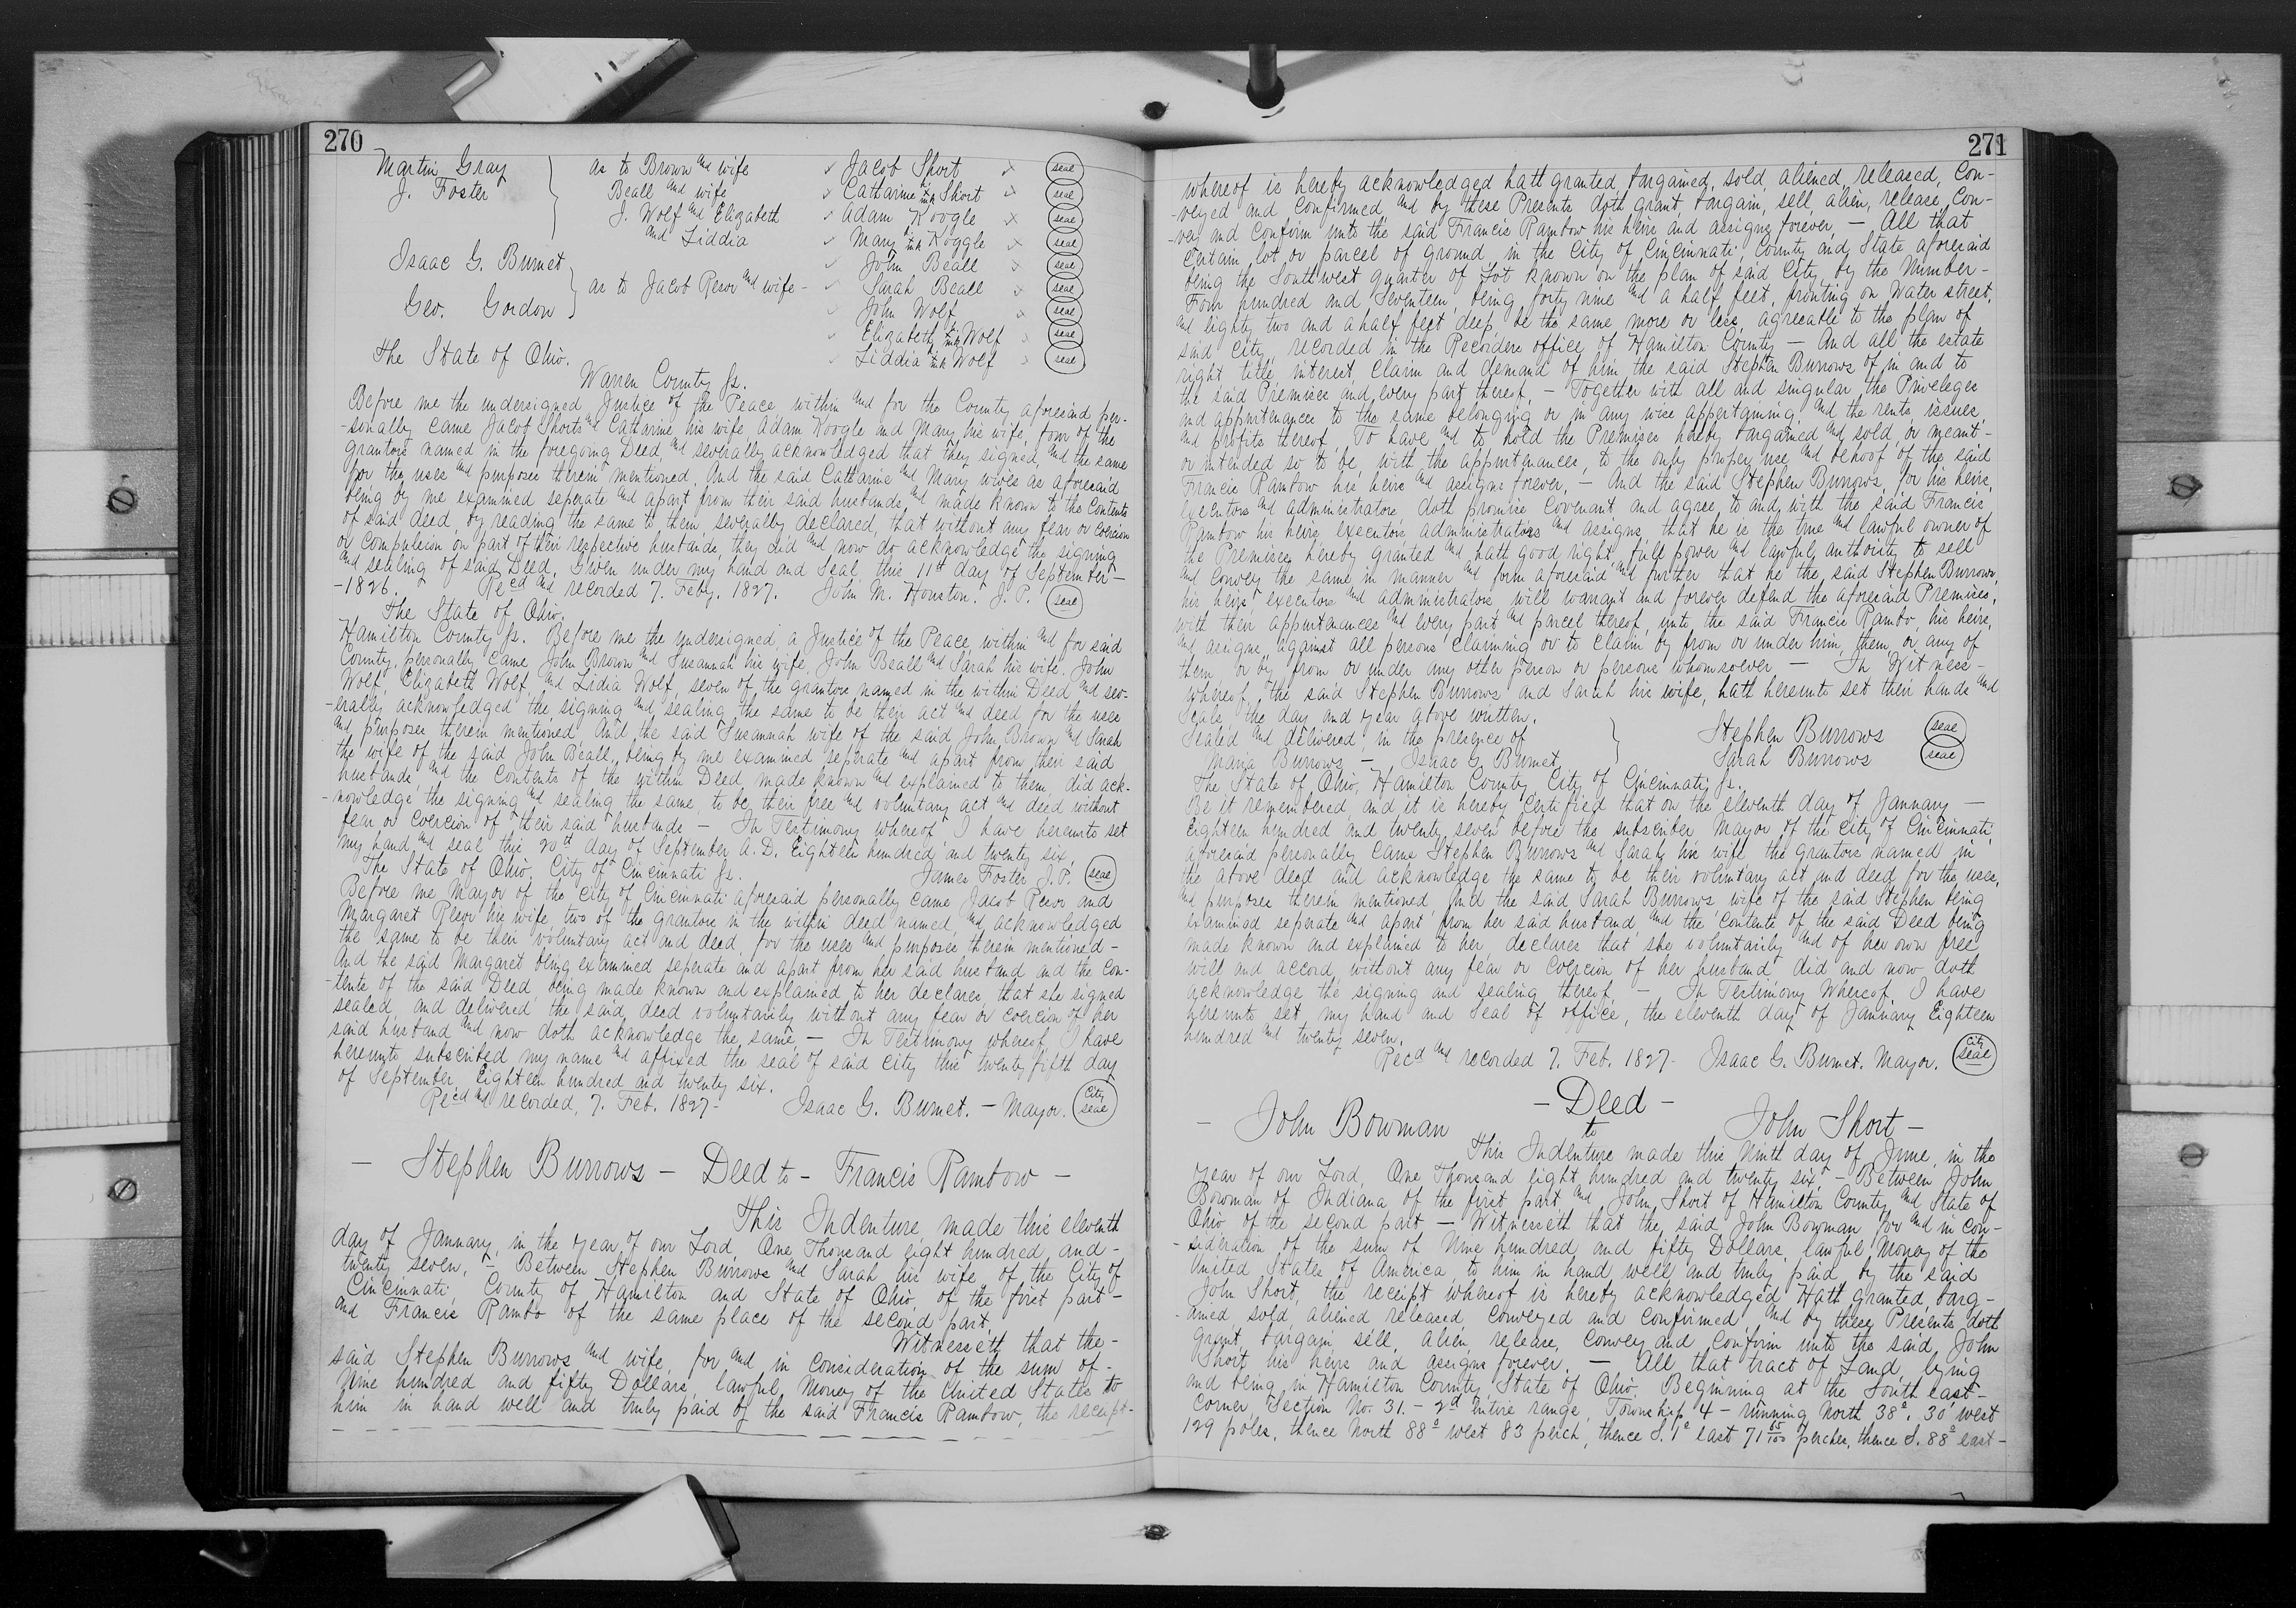 270
Martin Gray } as to Brown and wife ✓ Jacob Short x seal
J. Foster Beall and wife ✓ Catharine mk Short x seal
J. Wolf and Elizabeth ✓ Adam Koogle x seal
and Liddia ✓ Mary mk Koggle x seal
Isaac G. Burnet } ✓ John Beall x seal
as to Jacob Resor and wife - ✓ Sarah Beall x seal
Geo. Gordon ✓ John Wolf x seal
✓ Elizabeth mk Wolf x seal
The State of Ohio. ✓ Liddia mk Wolf x seal
Warren County ss.
Before me the undersigned Justice of the Peace within and for the County aforesaid per-
-sonally came Jacob Shorts and Catharine his wife, Adam Koogle and Mary his wife, four of the
grantors named in the foregoing Deed, and severally acknowledged that they signed, and the same
for the uses and purposes therein mentioned. And the said Catharine and Mary wives as aforesaid
being by me examined seperate and apart from their said husbands, and made known to the contents
of said deed, by reading the same to them severally declared, that without any fear or coercion
or compulsion on part of their respective husbands, they did and now do acknowledge the signing
and sealing of said Deed, Given under my hand and Seal, this 11th day of September -
-1826. Recd and recorded 7. Feby. 1827. John M. Houston. J. P. seal
The State of Ohio.
Hamilton County ss. Before me the undersigned, a Justice of the Peace within and for said
County, personally came John Brown and Susannah his wife, John Beall and Sarah his wife, John
Wolf, Elizabeth Wolf, and Lidia Wolf, seven of the grantors named in the within Deed and sev-
-erally acknowledged the signing and sealing the same to be their act and deed for the uses
and purposes therein mentioned And the said Susannah wife of the said John Brown and Sarah
the wife of the said John Beall, being by me examined seperate and apart from their said
husbands and the Contents of the within Deed made known and explained to them, did ack-
-nowledge the signing and sealing the same, to be their free and voluntary act and deed without
fear or coercion of their said husbands - In Testimony whereof I have hereunto set
my hand and seal this 20th day of September A.D. Eighteen hundred and twenty six.
The State of Ohio. City of Cincinnati ss. James Foster J. P. seal
Before me Mayor of the City of Cincinnati aforesaid personally came Jacob Resor and
Margaret Resor his wife, two of the grantors in the within deed named, and acknowledged
the same to be their voluntary act and deed for the uses and purposes therein mentioned -
And the said Margaret being examined seperate and apart from her said husband and the con-
-tents of the said Deed being made known and explained to her declares that she signed
sealed and delivered the said deed voluntarily without any fear or coercion of her
said husband and now doth acknowledge the same, - In Testimony whereof, I have
hereunto subscribed my name and affixed the seal of said City this twenty fifth day
of September Eighteen hundred and twenty six.
Recd and recorded, 7. Feb. 1827- Isaac G. Burnet. - Mayor. City seal
- Stephen Burrows - Deed to - Francis Rambow -
This Indenture made this eleventh
day of January, in the year of our Lord, One Thousand eight hundred, and -
twenty seven, - Between Stephen Burrows and Sarah his wife of the City of
Cincinnati, County of Hamilton and State of Ohio, of the first part -
and Francis Rambo of the same place of the second part,
Witnesseth that the -
said Stephen Burrows and wife, for and in consideration of the sum of -
Nine hundred and fifty Dollars, lawful Money of the United States to
him in hand well and truly paid by the said Francis Rambow, the receipt-
271
whereof is hereby acknowledged hath granted, bargained, sold, aliened, released, Con-
-veyed and Confirmed, and by these Presents doth grant, bargain, sell, alien, release, Con-
-vey and Confirm unto the said Francis Rambow his heirs and assigns forever, - All that
certain lot or parcel of ground, in the City of Cincinnati, County and State aforesaid
being the Southwest quarter of Lot known on the plan of said City, by the Number -
Four hundred and Seventeen, being forty nine and a half feet, fronting on Water street,
and eighty two and a half feet deep, be the same more or less, agreeable to the plan of
said City, recorded in the Recorders office of Hamilton County - And all the estate
right title interest, Claim and demand of him the said Stephen Burrows of in and to
the said Premises and every part thereof, - Together with all and singular the Priveleges
and appurtenances to the same belonging or in any wise appertaining, and the rents, issues
and profits thereof, To have and to hold the Premises hereby bargained and sold, or meant -
or intended so to be, with the appurtenances, to the only proper use, and behoof of the said
Francis Rambow his heirs and assigns forever, - And the said Stephen Burrows, for his heirs,
executors and administrators doth promise Covenant, and agree, to and with the said Francis
Rambow his heirs, executors administrators and assigns, that he is the true and lawful owner of
the Premises hereby granted and hath good right, full power and lawful authority to sell
and convey the same in manner and form aforesaid and further that he the said Stephen Burrows,
his heirs executors and administrators, will warrant and forever defend the aforesaid Premises,
with their appurtenances and every part and parcel thereof, unto the said Francis Rambo, his heirs,
and assigns, against all persons Claiming or to Claim by from or under him, them, or any of
them, or by from or under any other person or persons whomsoever - In Witness -
whereof, the said Stephen Burrows and Sarah his wife, hath hereunto set their hands and
Seals, the day and year above written.
Sealed and delivered in the presence of } Stephen Burrows seal
Maria Burrows - Isaac G. Burnet Sarah Burrows seal
The State of Ohio, Hamilton County, City of Cincinnati ss.
Be it remembered, and it is hereby Certified that on the eleventh day of January -
Eighteen hundred and twenty seven before the subscriber Mayor of the City of Cincinnati
aforesaid personally came Stephen Burrows and Sarah his wife the grantors named in
the above deed and acknowledge the same to be their voluntary act and deed for the uses,
and purposes therein mentioned, And the said Sarah Burrows wife of the said Stephen being
examined seperate and apart from her said husband, and the contents of the said Deed being
made known and explained to her, declares that she voluntarily and of her own free
will and accord, without any fear or Coercion of her husband, did and now doth
acknowledge the signing and sealing thereof, - In Testimony Whereof, I have
hereunto set my hand and Seal of office, the eleventh day of January Eighteen
hundred and twenty seven.
Recd and recorded 7. Feb. 1827- Isaac G. Burnet. Mayor. City seal
- Deed -
- John Bowman to John Short -
This Indenture made this Ninth day of June, in the
year of our Lord, One Thousand eight hundred and twenty six, - Between John
Bowman of Indiana of the first part, and John Short of Hamilton County and State of
Ohio of the second part - Witnesseth that the said John Bowman for and in con-
-sideration of the sum of Nine hundred and fifty Dollars, lawful Money of the
United States of America, to him in hand well and truly paid by the said
John Short, the receipt whereof is hereby acknowledged Hath granted, barg-
-ained, sold, aliened released, conveyed and confirmed and by these Presents doth
grant, bargain sell, alien, release, convey and confirm unto the said John
Short his heirs and assigns forever. - All that tract of Land, lying
and being in Hamilton County State of Ohio. Beginning at the South east -
corner, Section No. 31. - 2d entire range, Township 4 - running North 38°. 30' west
129 poles, thence North 88° west 83 perch, thence S. 1° east 71 65/100 perches, thence S. 88° east -